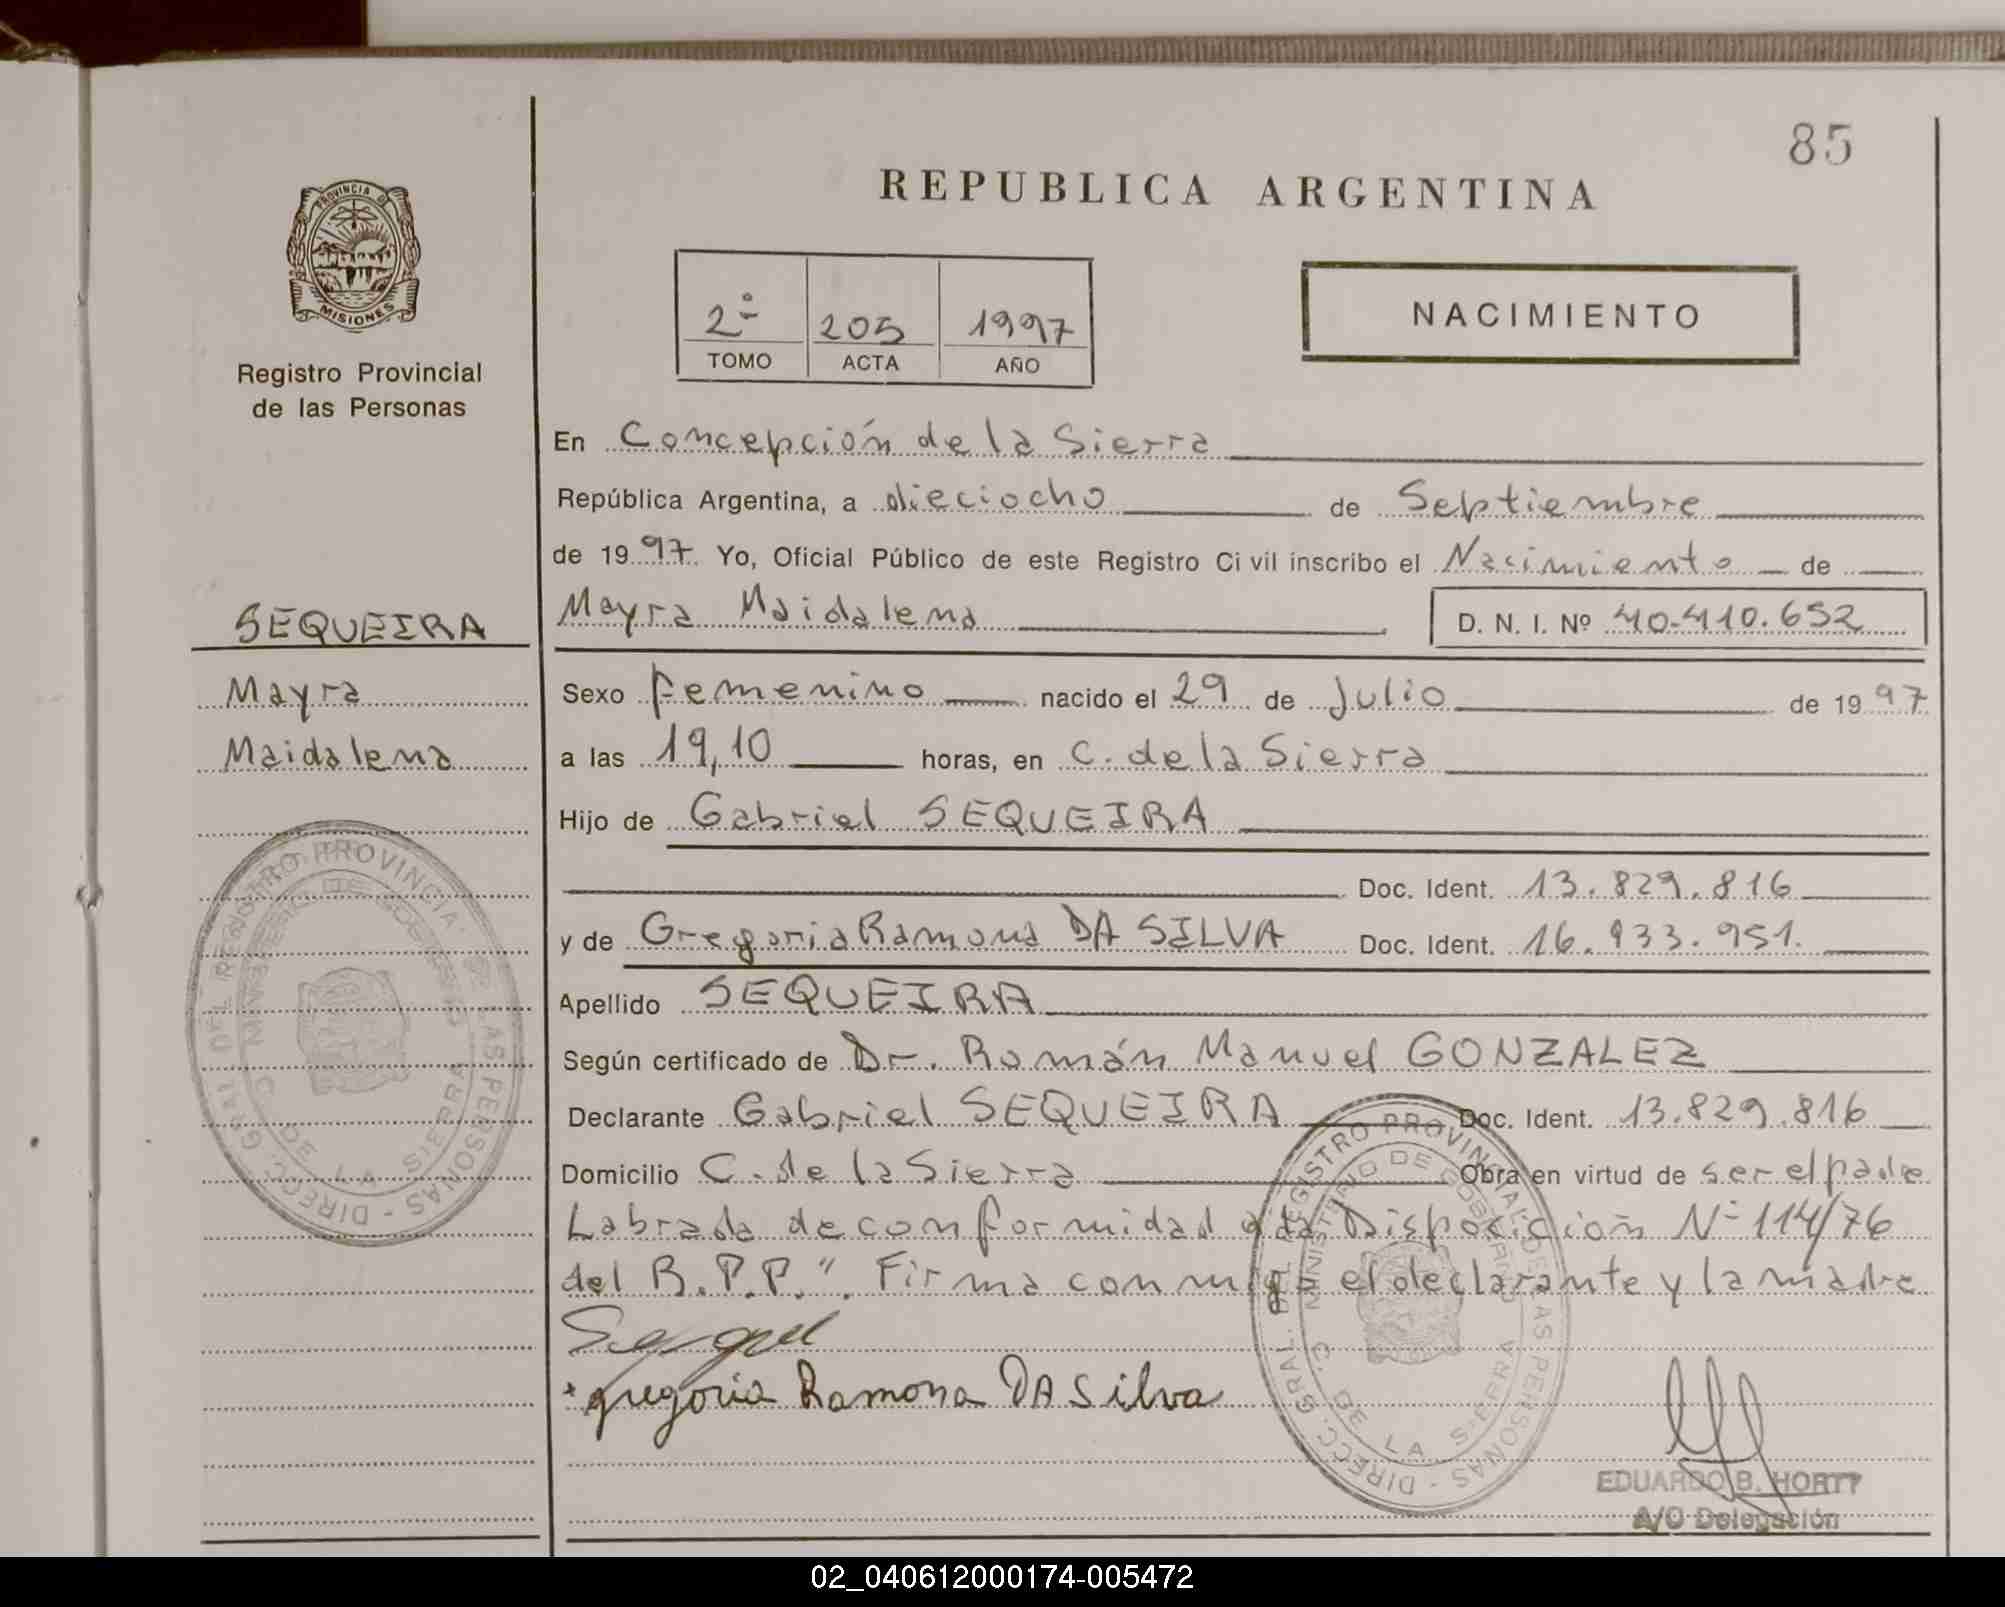 85
REPUBLICA ARGENTINA
PROVINCIA DE
MISIONES
Registro Provincial
de las Personas
2º 205 1997
TOMO ACTA AÑO
NACIMIENTO
En Concepción de la Sierra
República Argentina, a dieciocho de Septiembre
de 1997. Yo, Oficial Público de este Registro Civil inscribo el Nacimiento de
SEQUEIRA
Mayra Maidalena D. N. I. Nº 40.410.652
Mayra
Maidalena
Sexo femenino nacido el 29 de Julio de 1997
a las 19,10 horas, en C. de la Sierra
Hijo de Gabriel SEQUEIRA
Doc. Ident. 13.829.816
y de Gregoria Ramona DA SILVA Doc. Ident. 16.933.951.
Apellido SEQUEIRA
Según certificado de Dr. Román Manuel GONZALEZ
Declarante Gabriel SEQUEIRA Doc. Ident. 13.829.816
Domicilio C. de la Sierra Obra en virtud de ser el padre
Labrada de conformidad a la Disposición Nº 114/76
del R.P.P.". Firma conmigo el declarante y la madre
gregoria Ramona DA Silva
DIRECC. GRAL. DEL REGISTRO PROVINCIAL DE LAS PERSONAS
MINISTERIO DE GOBIERNO
C. DE LA SIERRA
DIRECC. GRAL. DEL REGISTRO PROVINCIAL DE LAS PERSONAS
MINISTERIO DE GOBIERNO
C. DE LA SIERRA
EDUARDO B. HORTT
A/C Delegación
02_040612000174-005472